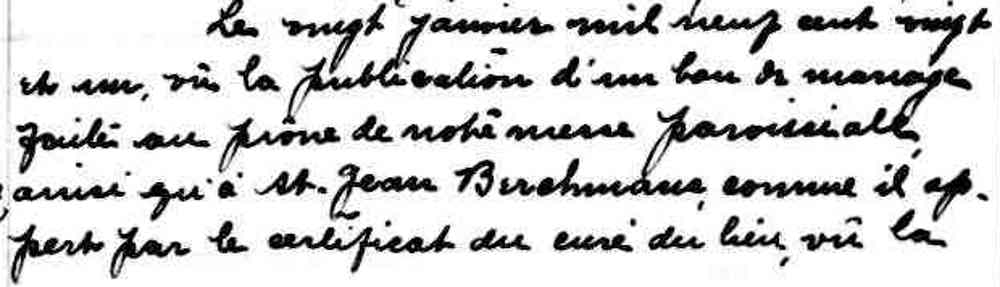 Le vingt janvier mil neuf cent vingt
et un, vu la publication d'un ban de mariage
faite au prône de notre messe paroissiale,
ainsi qu'à St. Jean Berchmans, comme il ap-
pert par le certificat du curé du lieu, vu la